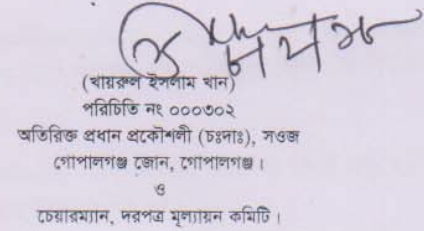 (খায়রুল ইসলাম খান)
পরিচিতি নং ০০০৩০২
অতিরিক্ত প্রধান প্রকৌশলী (চঃদাঃ), সওজ
গোপালগঞ্জ জোন, গোপালগঞ্জ।
ও
চেয়ারম্যান, দরপত্র মূল্যায়ন কমিটি।